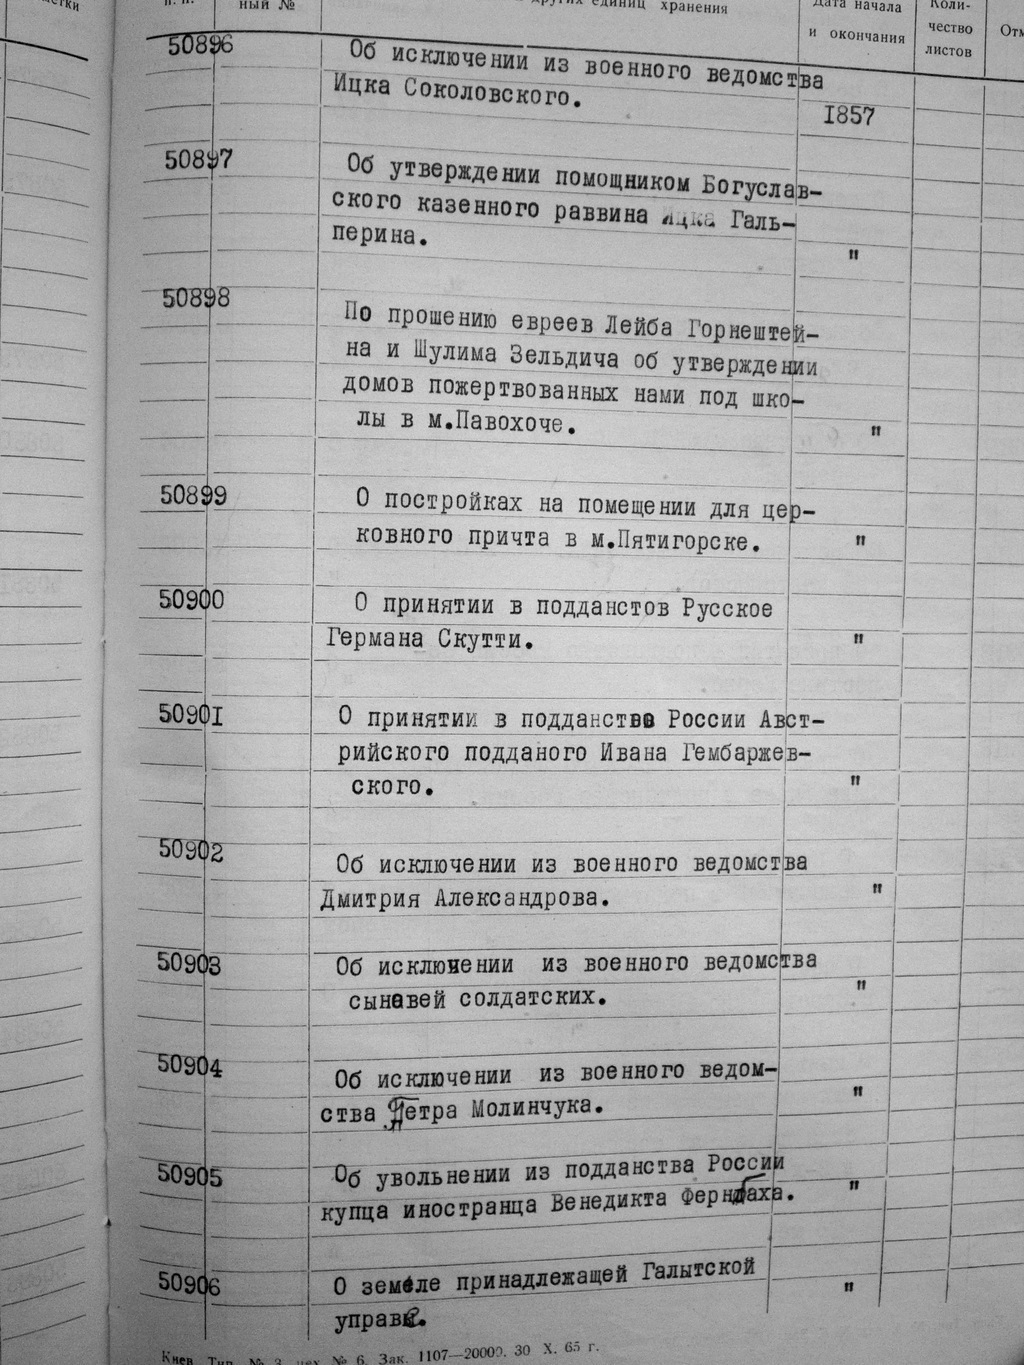 ный №
других единиц хранения
Дата начала
и окончания
Коли-
чество
листов
50896 Об исключении из военного ведомства
Ицка Соколовского.
1857
50897 Об утверждении помощником Богуслав-
ского казенного раввина Ицка Галь-
перина. "
50898 По прошению евреев Лейба Горнештей-
на и Шулима Зельдича об утверждении
домов пожертвованных нами под шко-
лы в м.Павохоче. "
50899 О постройках на помещении для цер-
ковного причта в м.Пятигорске. "
50900 О принятии в подданстов Русское
Германа Скутти. "
50901 О принятии в подданство России Авст-
рийского подданого Ивана Гембаржев-
ского. "
50902 Об исключении из военного ведомства
Дмитрия Александрова. "
50903 Об исключении из военного ведомства
сыновей солдатских. "
50904 Об исключении из военного ведом-
ства Петра Молинчука. "
50905 Об увольнении из подданства России
купца иностранца Венедикта Фернбаха. "
50906 О земле принадлежащей Галытской
управе. "
Киев Тип. № 3 цех № 6. Зак. 1107—20000. 30 X. 65 г.